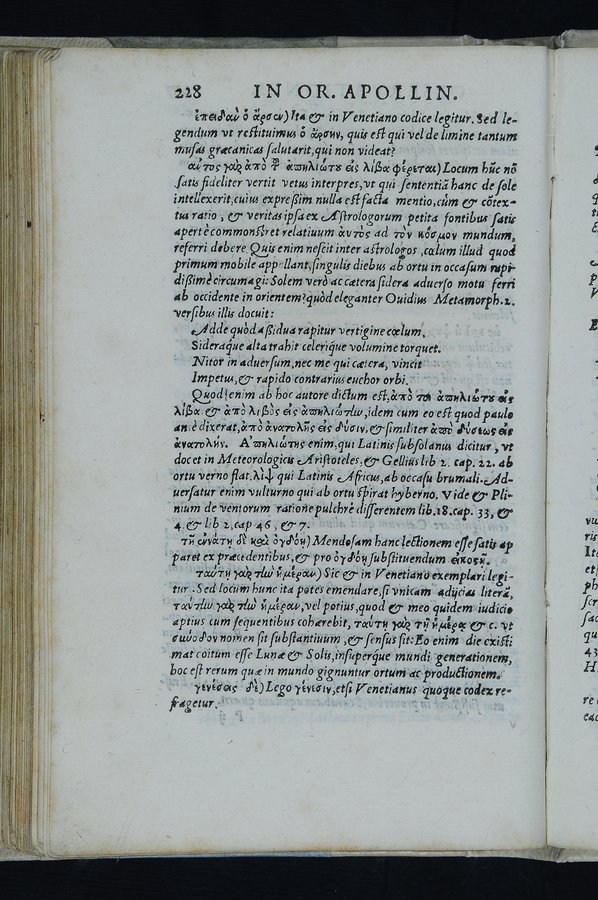 228 IN OR. APOLLIN.
ἐπειδαὼ ὁ ἄρσεν) Ita & in Venetiano codice legitur. Sed le-
gendum vt restituimus ὁ ἄρσην, quis est qui vel de limine tantum
musas græcanicas salutarit, qui non videat?
αὐτὸς γὰρ ἀπὸ τ͂ ἀπηλιώτου εἰς λίβα φέρεται) Locum hūc nō
satis fideliter vertit vetus interpres, vt qui sententiā hanc de sole
intellexerit, cuius expressim nulla est facta mentio, cùm & cōtex-
tus ratio, & veritas ipsa ex Astrologorum petita fontibus satis
apertè commonstret relatiuum ἀυτὸς ad τὸν κόσμον mundum,
referri debere. Quis enim nescit inter astrologos, cœlum illud quod
primum mobile appellant, singulis diebus ab ortu in occasum rapi-
dissimè circumagi: Solem verò ac cætera sidera aduerso motu ferri
ab occidente in orientem? quòd eleganter Ouidius Metamorph. 2.
versibus illis docuit:
Adde quòd assidua rapitur vertigine cœlum,
Sideraq́ue alta trahit celeriq́ue volumine torquet.
Nitor in aduersum, nec me qui cætera, vincit
Impetus, & rapido contrarius euehor orbi.
Quod enim ab hoc autore dictum est, ἀπὸ τοῦ ἀπηλιώτου εἰς
λίβα & ἀπὸ λιβὸς εἰς ἀπηλιώτην, idem cum eo est quod paulo
antè dixerat, ἀπὸ ἀνατολῆς εἰς δύσιν, & similiter ἀπὸ δύσεως εἰς
ἀνατολήν. Ἀπηλιώτης enim, qui Latinis subsolanus dicitur, vt
docet in Meteorologicis Aristoteles, & Gellius lib 2. cap. 22. ab
ortu verno flat. λὶψ qui Latinis Africus, ab occasu brumali. Ad-
uersatur enim vulturno qui ab ortu spirat hyberno. Vide & Pli-
nium de ventorum ratione pulchrè disserentem lib. 18. cap. 33, &
4. & lib 2. cap 46, & 7.
τῇ ἐνάτῃ δὲ καὶ ὀγδόῃ) Mendosam hanc lectionem esse satis ap
paret ex præcedentibus, & pro ὀγδόῃ substituendum εἰκοςῇ.
ταύτῃ γὰρ τὼ ἡμέραν) Sic & in Venetiano exemplari legi-
tur. Sed locum hunc ita potes emendare, si vnicam adijcias literā,
ταύτὼ γὰρ τὼ ἡμέραν, vel potius, quod & meo quidem iudicio
aptius cum sequentibus cohærebit, ταύτῃ γὰρ τῇ ἡμέρᾳ & c. vt
σύνοδον nomen sit substantiuum, & sensus sit: Eo enim die existi
mat coitum esse Lunæ & Solis, insuperq́ue mundi generationem,
hoc est rerum quæ in mundo gignuntur ortum ac productionem.
γενέσεις δὲ) Lego γένεσιν, etsi Venetianus quoque codex re-
fragetur.